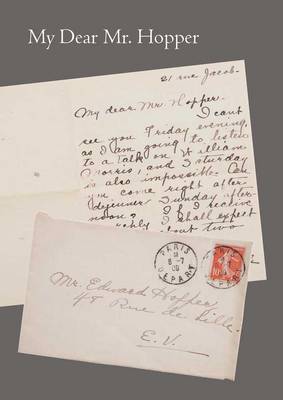 My Dear Mr. Hopper
21 rue Jacob-
My dear Mr. Hopper.
I cant
see you Friday evening,
as I am going to listen
to a talk on William
Morris, and Saturday
is also impossible. Can
come right after
dejeuner Sunday after-
noon? If I receive
I shall expect
about two
PARIS
DEPART
10
Mr. Edward Hopper,
48 Rue de Lille.
E. V.